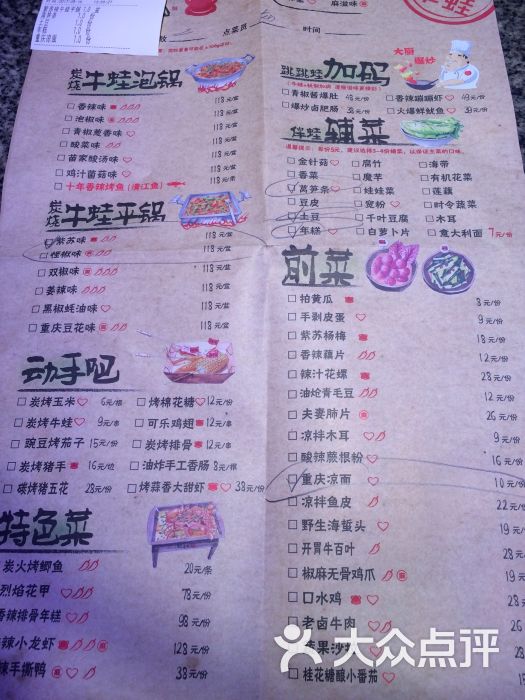 麻滋味
点菜员
时间
炭烧牛蛙泡锅
香辣味 118元/盆
泡椒味 118元/盆
青椒葱香味 118元/盆
酸菜味 118元/盆
苗家酸汤味 118元/盆
鸡汁菌菇味 118元/盆
十年香辣烤鱼(清江鱼)
炭烧牛蛙平锅
紫苏味 118元/盆
怪椒味 118元/盆
双椒味 118元/盆
姜辣味 118元/盆
黑椒蚝油味 118元/盆
重庆豆花味 118元/盆
动手吧
炭烤玉米 6元/根
烤棉花糖 12元/份
炭烤牛蛙 9元/串
可乐鸡翅 12元/串
豌豆烤茄子 15元/份
炭烤排骨 12元/串
炭烤猪手 16元/位
油炸手工香肠 8元/根
碳烤猪五花 28元/份
烤蒜香大甜虾 38元/份
特色菜
炭火烤鲫鱼 20元/条
烈焰花甲 78元/份
香辣排骨年糕 98元/份
辣小龙虾 128元/份
辣手撕鸭 38元/份
跳跳蛙加码
大厨爆炒
青椒酱爆肚 48元/份
香辣蹦蹦虾
爆炒卤肥肠 38元/份
火爆鲜鱿鱼
伴蛙辅菜
金针菇
腐竹
海带
香菜
魔芋
有机花菜
莴笋条
娃娃菜
莲藕
豆皮
宽粉
时令蔬菜
土豆
千叶豆腐
木耳
年糕
白萝卜片
意大利面 7元/份
前菜
拍黄瓜 8元/份
手剥皮蛋 9元/份
紫苏杨梅 18元/份
香辣藕片 12元/份
辣汁花螺 28元/份
油炝青毛豆 12元/份
夫妻肺片 26元/份
凉拌木耳 9元/份
酸辣蕨根粉 16元/份
重庆凉面 10元/份
凉拌鱼皮 22元/份
野生海蜇头 19元/份
开胃牛百叶 28元
椒麻无骨鸡爪 28
口水鸡 28
老卤牛肉 26
桂花糖酿小番茄
大众点评